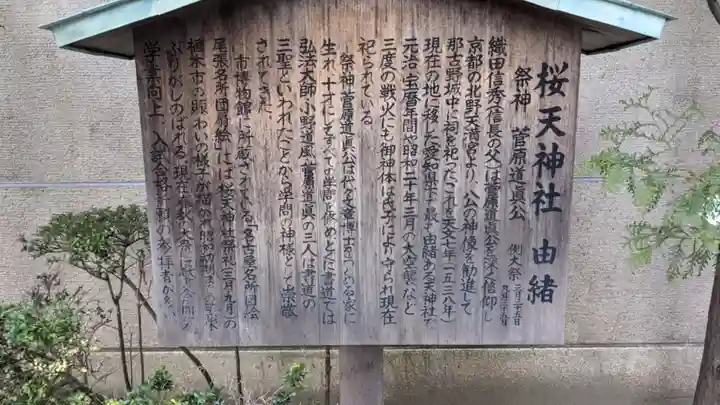 桜天神社 由緒
祭神 菅原道真公 例大祭 三月二十五日
織田信秀(信長の父)は菅原道真公を深く信仰し
京都の北野天満宮より、公の神像を勧進して
那古野城中に祠を祀った。これを天文七年(一五三八年)
現在の地に移し(愛知県下で最も由緒ある天神社で
元治、宝暦年間や昭和二十年三月の大空襲など
三度の戦火にも御神体は氏子により守られ現在
祀られている
祭神菅原道真公は代々文章博士をつとめる家に
生れ、十才にしてすべての学問を修めとくに書道では
弘法大師、小野道風、菅原道真の三人は書道の
三聖といわれたことから学問の神様として崇敬
されてきた。
市博物館に所蔵されている「名古屋名所団絵
尾張名所団扇絵」には桜天神社祭礼(三月九月)の
植木市の賑わいの様子が描かれ
ぶりがしのばれる。現在も
学業向上、入試合格祈願の参拝者が多い